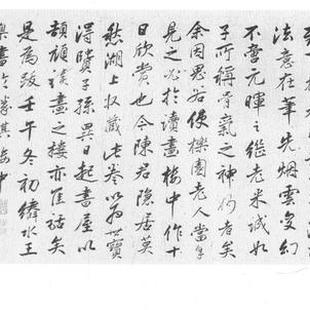 法意在筆先烟雲變幻
不啻元暉之繼老米誠如
子所稱骨氣之神妙者矣
余因思若使櫟園老人當年
見之必於讀畫樓中作十
日欣賞也今陳君隱居莫
愁湖上收藏此卷以為世寶
得賢子孫異日起書屋以
頡頏讀畫之樓亦佳話矣
是為跋壬午冬初繡水王
書於